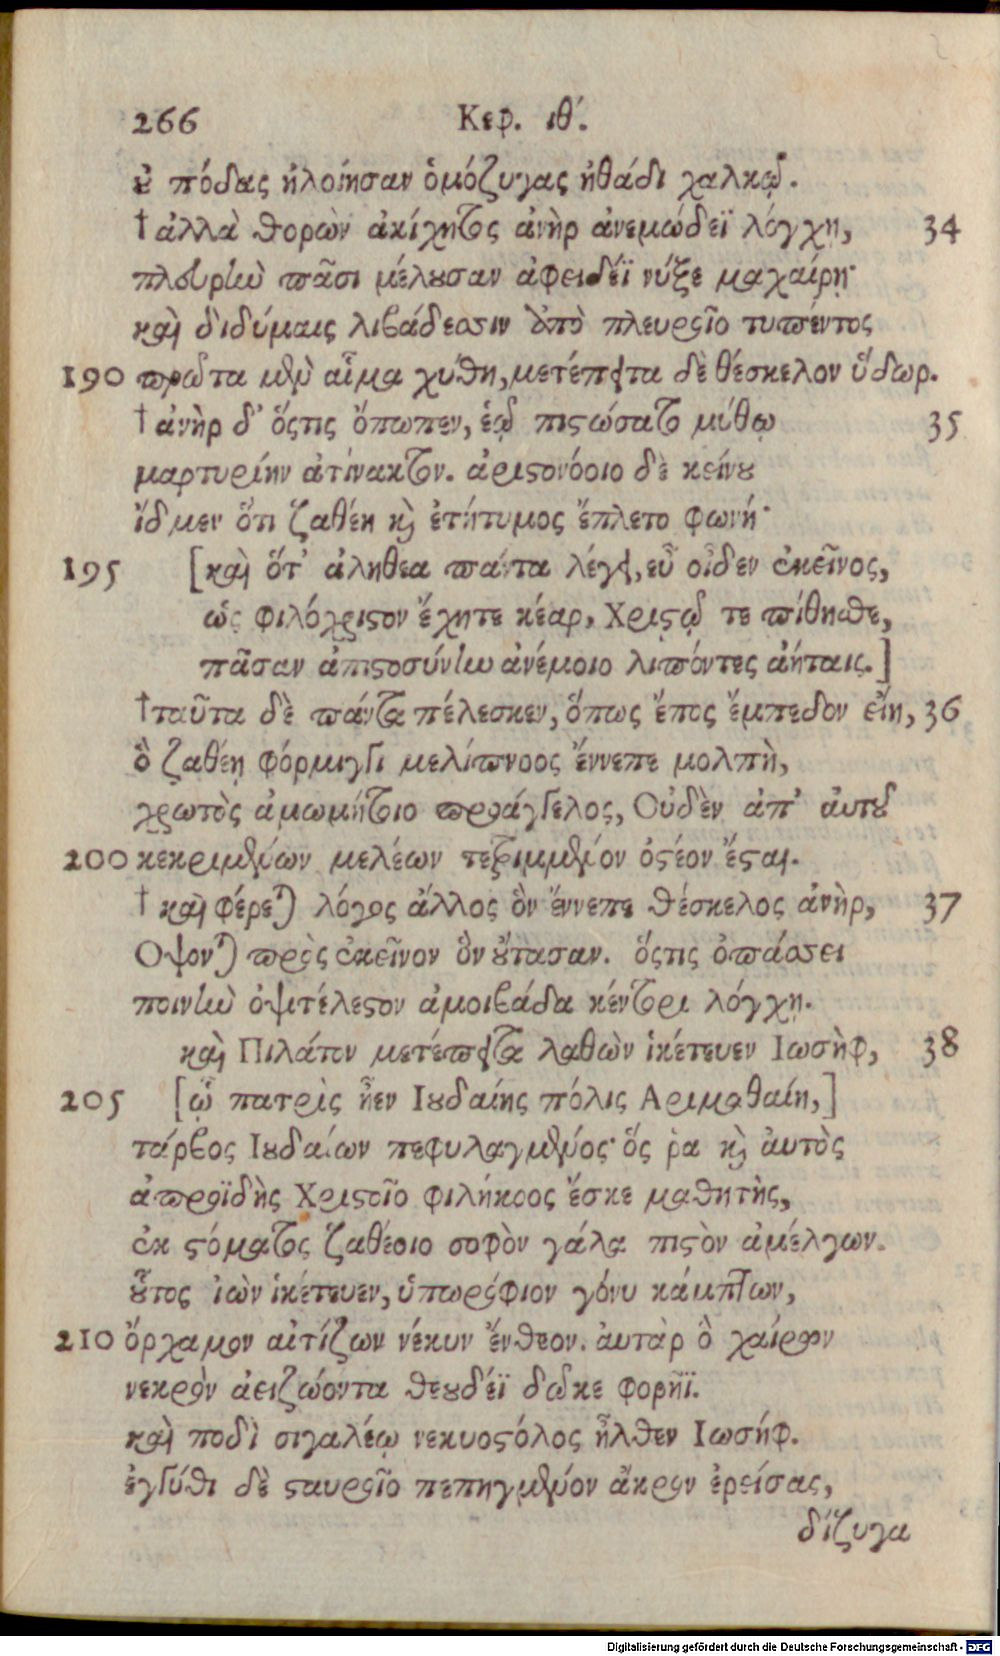 266 Κεφ. ιθʹ.
ȣ̓ πόδας ἠλοίησαν ὁμόζυγας ἠθάδι χαλκῷ.
† ἀλλὰ θορὼν ἀκίχητος ἀνὴρ ἀνεμώδεϊ λόγχῃ, 34
πλευρὴν πᾶσι μέλȣσαν ἀφειδέϊ νύξε μαχαίρῃ·
καὶ διδύμαις λιβάδεσσιν ἀπὸ πλευροῖο τυπέντος
190 πρῶτα μὲν αἷμα χύθη, μετέπειτα δὲ θέσκελον ὕδωρ.
† ἀνὴρ δ' ὅςτις ὄπωπεν, ἑῷ πιστώσατο μύθῳ 35
μαρτυρίην ἀτίνακτον. ἀριστονόοιο δὲ κείνȣ
ἴδμεν ὅτι ζαθέη κὶ ἐτήτυμος ἔπλετο φωνή·
195 [καὶ ὅτ' ἀληθεα πάντα λέγει, εὖ οἶδεν ἐκεῖνος,
ὡς φιλόχριστον ἔχητε κέαρ, Χριστῷ τε πίθησθε,
πᾶσαν ἀπιστοσύνην ἀνέμοιο λιπόντες ἀήταις.]
† ταῦτα δὲ πάντα πέλεσκεν, ὅπως ἔπος ἔμπεδον εἴη, 36
ὃ ζαθέῃ φόρμιγγι μελίπνοος ἔννεπε μολπὴ,
χρωτὸς ἀμωμήτοιο προάγγελος, Οὐδὲν ἀπ' αὐτȣ͂
200 κεκριμένων μελέων τετριμμένον ὀστέον ἔσται.
† καὶ φέρεται λόγος ἄλλος ὃν ἔννεπε θέσκελος ἀνὴρ, 37
Οψονται πρὸς ἐκεῖνον ὃν ȣ́τασαν. ὅςτις ὀπάσσει
ποινὴν ὀψιτέλεστον ἀμοιβάδα κέντορι λόγχῃ.
καὶ Πιλάτον μετέπειτα λαθὼν ἱκέτευεν Ιωσὴφ, 38
205 [ᾧ πατρὶς ἦεν Ιȣδαίης πόλις Αριμαθαίη,]
τάρβος Ιȣδαίων πεφυλαγμένος· ὅς ῥα κὶ αὐτὸς
ἀπροϊδὴς Χριστοῖο φιλήκοος ἔσκε μαθητὴς,
ἐκ στόματος ζαθέοιο σοφὸν γάλα πιστὸν ἀμέλγων.
ȣ͂τος ἰὼν ἱκέτευεν, ὑπωρόφιον γόνυ κάμπτων,
210 ὄρχαμον αἰτίζων νέκυν ἔνθεον. αὐτὰρ ὃ χαίρων
νεκρὸν ἀειζώοντα θεȣδέϊ δῶκε φορῆϊ.
καὶ ποδὶ σιγαλέῳ νεκυοστόλος ἦλθεν Ιωσήφ.
ἐγγύθι δὲ σταυροῖο πεπηγμένον ἄκρον ἐρείσας,
δίζυγα
Digitalisierung gefördert durch die Deutsche Forschungsgemeinschaft - DFG